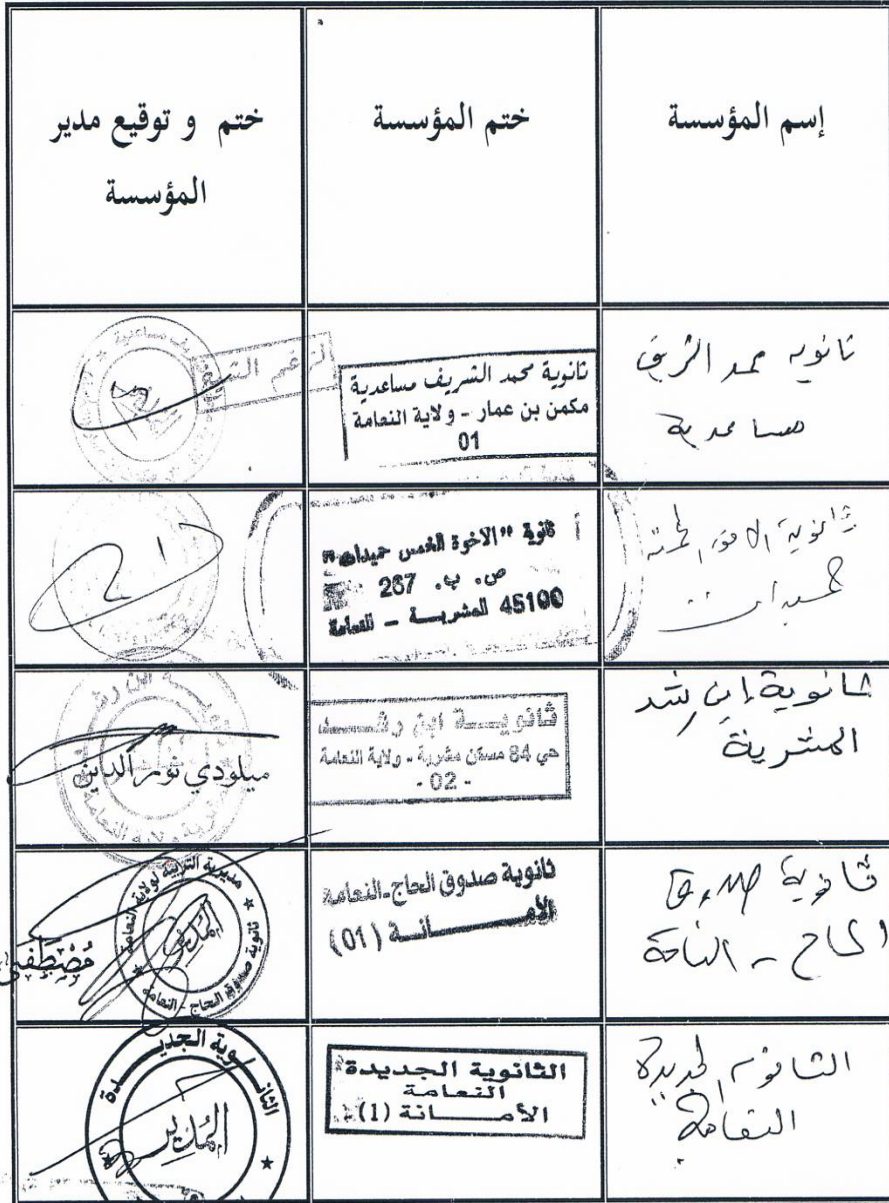 إسم المؤسسة
ختم المؤسسة
ختم و توقيع مدير
المؤسسة
ثانوية محمد الشريف
مساعدية
ثانوية محمد الشريف مساعدية
مكمن بن عمار - ولاية النعامة
01
ثانوية الاخوة الخمس
حميدات
ثانوية "الاخوة الخمس حميدات"
ص. ب. 267
45100 المشريــة - النعامة
ثانوية ابن رشد
المشرية
ثانويــــة ابن رشــــد
حي 84 مسكن مشرية - ولاية النعامة
- 02 -
ميلودي نور الدين
ثانوية صدوق
الحاج - النعامة
ثانوية صدوق الحاج-النعامة
الأمـــــــانــة (01)
مديرية التربية لولاية النعامة
ثانوية صدوق الحاج - النعامة
المدير
مصطفى
الثانوية الجديدة
النعامة
الثانوية الجديدة
النعامة
الأمـــــانة (1)
الثانــوية الجديــــدة
المدير